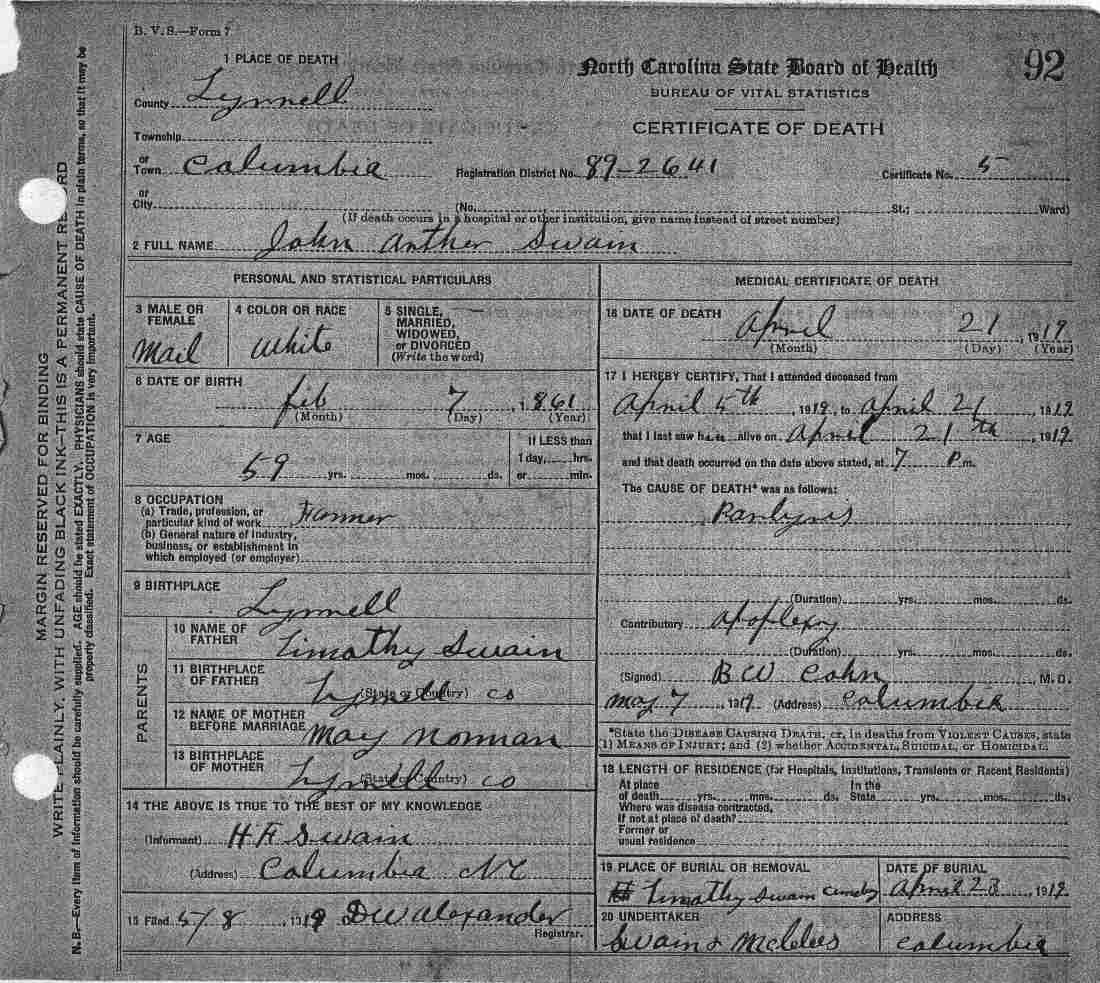 B. V. S.—Form 7
1 PLACE OF DEATH
North Carolina State Board of Health
92
County Tyrrell
BUREAU OF VITAL STATISTICS
Township
CERTIFICATE OF DEATH
or
Town Columbia
Registration District No. 89-2641
Certificate No. 5
or
City (No. St.; Ward)
(If death occurs in a hospital or other institution, give name instead of street number)
2 FULL NAME John Arther Swain
PERSONAL AND STATISTICAL PARTICULARS
3 MALE OR FEMALE
Mail
4 COLOR OR RACE
White
5 SINGLE, MARRIED, WIDOWED, or DIVORCED
(Write the word)
6 DATE OF BIRTH
feb 7, 1861
(Month) (Day) (Year)
7 AGE
59 yrs. mos. ds.
If LESS than
1 day, hrs.
or min.
8 OCCUPATION
(a) Trade, profession, or
particular kind of work Farmer
(b) General nature of industry,
business, or establishment in
which employed (or employer)
9 BIRTHPLACE
Tyrrell
PARENTS
10 NAME OF FATHER
Timathy Swain
11 BIRTHPLACE OF FATHER
(State or Country)
Tyrrell co
12 NAME OF MOTHER BEFORE MARRIAGE
May Norman
13 BIRTHPLACE OF MOTHER
(State or Country)
Tyrrell co
14 THE ABOVE IS TRUE TO THE BEST OF MY KNOWLEDGE
(Informant) H F Swain
(Address) Columbia NC
15 Filed 5/8 1919 DW Alexander
Registrar.
MEDICAL CERTIFICATE OF DEATH
16 DATE OF DEATH
April 21, 1919
(Month) (Day) (Year)
17 I HEREBY CERTIFY, That I attended deceased from
April 5th, 1919, to April 21 1919
that I last saw h alive on April 21th, 1919
and that death occurred on the date above stated, at 7 P m.
The CAUSE OF DEATH* was as follows:
Parlysis
(Duration) yrs. mos. ds.
Contributory Apoplexy
(Duration) yrs. mos. ds.
(Signed) B W Cohn, M. D.
May 7, 1919 (Address) Columbia
*State the DISEASE CAUSING DEATH, or, in deaths from VIOLENT CAUSES, state
(1) MEANS OF INJURY; and (2) whether ACCIDENTAL, SUICIDAL, or HOMICIDAL.
18 LENGTH OF RESIDENCE (for Hospitals, Institutions, Transients or Recent Residents)
At place In the
of death yrs. mos. ds. State yrs. mos. ds.
Where was disease contracted,
If not at place of death?
Former or
usual residence
19 PLACE OF BURIAL OR REMOVAL
Timathy Swain
DATE OF BURIAL
April 23, 1919
20 UNDERTAKER
Swain &
ADDRESS
Columbia
MARGIN RESERVED FOR BINDING
WRITE PLAINLY, WITH UNFADING BLACK INK—THIS IS A PERMANENT RECORD
N. B.—Every item of Information should be carefully supplied. AGE should be stated EXACTLY. PHYSICIANS should state CAUSE OF DEATH in plain terms, so that it may be
properly classified. Exact statement of OCCUPATION is very important.